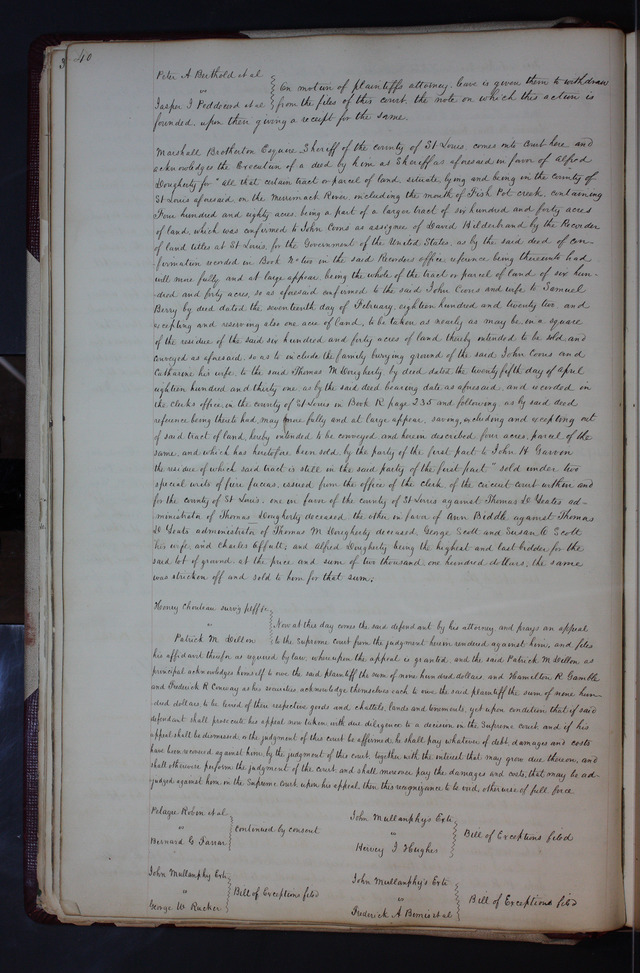 40
Peter A Berthold et al
"
On motion of plaintiffs attorney, leave is given them to withdraw
Jasper J Peddecord et al
from the files of this court the note on which this action is
founded, upon their giving a receipt for the same.
Marshall Brotherton Esquire Sheriff of the county of St Louis, comes into Court here and
acknowledges the Execution of a deed by him as Sheriff as aforesaid in favor of Alfred
Dougherty for "all that certain tract or parcel of land situate lying and being in the county of
St Louis aforesaid on the Merrimack River, including the mouth of Fish Pot creek, containing
Four hundred and eighty acres, being a part of a larger tract of six hundred and forty acres
of land, which was confirmed to John Coons as assignee of David Hilderband by the Recorder
of land titles at St Louis, for the Government of the United States, as by the said deed of con-
firmation recorded in Book No two in the said Recorders office, reference being thereunto had
will more fully and at large appear, being the whole of the tract or parcel of land of six hun-
-dred and forty acres, so as aforesaid confirmed to the said John Coons and wife to Samuel
Berry by deed dated the seventeenth day of February, eighteen hundred and twenty two, and
excepting and reserving also one acre of land, to be taken as nearly as may be in a square
of the residue of the said six hundred and forty acres of land thereby intended to be sold and
conveyed as aforesaid, so as to include the family burying ground of the said John Coons and
Catharine his wife, to the said Thomas M Dougherty by deed dated the twenty fifth day of april
eighteen hundred and thirty one, as by the said deed bearing date as aforesaid, and recorded in
the clerks office, in the county of St Louis in Book R page 235 and following, as by said deed
reference being thereto had, may more fully and at large appear, saving, excluding and excepting out
of said tract of land, hereby intended to be conveyed and herein described four acres, parcel of the
same, and which has heretofore been sold by the party of the first part to John H Garvin
the residue of which said tract is still in the said party of the first part" sold under two
special writs of fieri facias, issued from the office of the clerk of the circuit court within and
for the county of St Louis, one in favor of the county of St Louis against Thomas D Yeats ad-
-ministrator of Thomas Dougherty deceased the other in favor of Ann Biddle against Thomas
D Yeats administrator of Thomas M Dougherty deceased, George Scott and Susan C Scott
his wife, and Charles Tiffult, and Alfred Dougherty being the highest and last bidder for the
said lot of ground, at the price and sum of two thousand one hundred dollars, the same
was stricken off and sold to him for that sum.
Henry Chouteau surv'g ptff
"
Now at this day comes the said defendant by his attorney and prays an appeal
Patrick M Dillon
to the Supreme Court from the judgment herein rendered against him, and files
his affidavit therefor as required by law, whereupon the appeal is granted, and the said Patrick M Dillon as
principal acknowledges himself to owe the said plaintiff the sum of nine hundred dollars, and Hamilton R Gamble
and Frederick R Conway as his securities acknowledge themselves each to owe the said plaintiff the sum of nine hun-
dred dollars, to be levied of their respective goods and chattels, lands and tenements, yet upon condition that if said
defendant shall prosecute his appeal now taken with due diligence to a decision in the Supreme court, and if his
appeal shall be dismissed, or the judgment of this court be affirmed, he shall pay whatever of debt, damages and costs
have been recovered against him, by the judgment of this court, together with the interest that may grow due thereon, and
shall otherwise perform the judgment of the court and shall moreover pay the damages and costs, that may be ad-
judged against him in the Supreme court upon his appeal, then this recognizance to be void, otherwise of full force
Pelagie Robin et al
"
continued by consent
Bernard G Farrar
John Mullanphy's Exti
"
Bill of Exceptions filed
Hervey J Hughes
John Mullanphy Exti
"
Bill of Exceptions filed
George W Rucker
John Mullanphy's Exti
"
Bill of Exceptions filed
Frederick A Bemis et al